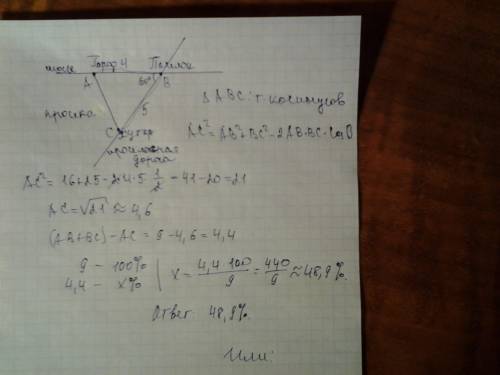 шоссе Город 4 Посёлок
A 60° B
просека 5
C Хутор
просёлочная
дорога
Δ ABC: т. косинусов
AC² = AB² + BC² - 2AB·BC·Cos
AC² = 16+25 - 2·4·5·1/2 = 41-20=21
AC = √21 ≈ 4,6
(AB+BC) - AC = 9 - 4,6 = 4,4
9 - 100%
4,4 - x%
x = 4,4·100/9 = 440/9 ≈ 48,9%.
Ответ: 48,9%.
Или: